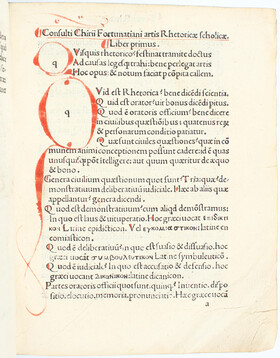 Consulti Chirii Fortunatiani artis Rhetoricæ scholicæ
Liber primus.
q Visquis rhetorices festinat tramite doctus
Ad causas legesq; trahi: bene perlegat artis
Hoc opus: & notum faciat per cōpita callem.
q Vid est Rhetorica? bene dicēdi scientia.
Quid est orator? uir bonus dicēdi pitus.
Quod ē oratoris officiū? bene dicere
in ciuilibus quæstiōibus: quatenus rege
& personarum conditio patiatur.
Quæ sunt ciuiles quæstiones? quæ in cō
munem animi conceptionem possunt cadere: id ē quas
unusquisq; pōt itelligere: aut quum quæritur de æquo
& bono.
Genera ciuilium quæstionum quot sunt? Tria: quæ? de-
monstratiuum deliberatiuū iudiciale. Hæc ab aliis quæ
appellantur? genera dicendi.
Quod est demonstratiuum? cum aliqd demōstramus:
In quo est laus & uituperatio. Hoc græci uocant
Latine epidicticon. Vel εγκομιαστικον: latine
encomiasticon.
Quod ē deliberatiuū? in quo est suasio & dissuasio. hoc
græci uocant συμβουλευτικον Latine symbuleuticō.
Quod ē iudiciale? in quo est accusatio & defensio. hoc
græci uocant δικανικον latine dicanicon.
Partes oratoris officii quot sunt? quinq; Inuentio. dispo-
sitio. elocutio. memoria. pronunciatio. Has græci uocāt
a